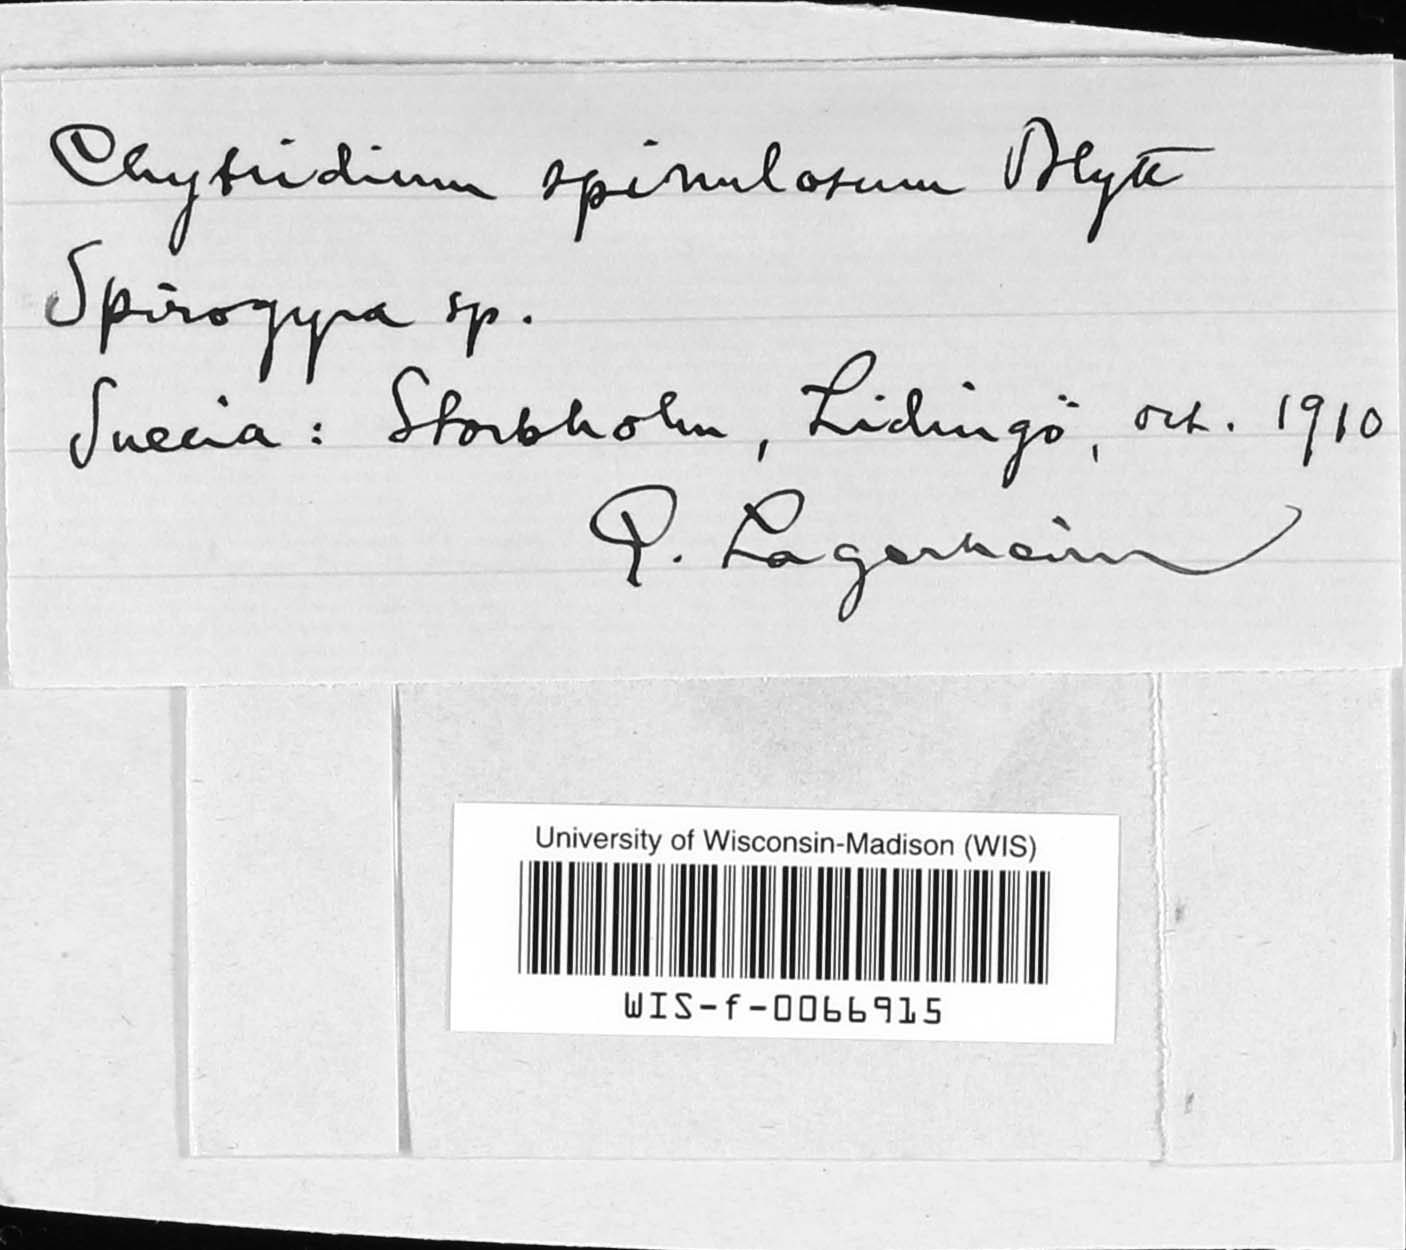 Chytridium spinulosum Blytt
Spirogyra sp.
Suecia: Stockholm, Lidingö, oct. 1910
G. Lagerheim
University of Wisconsin-Madison (WIS)
WIS-f-0066915